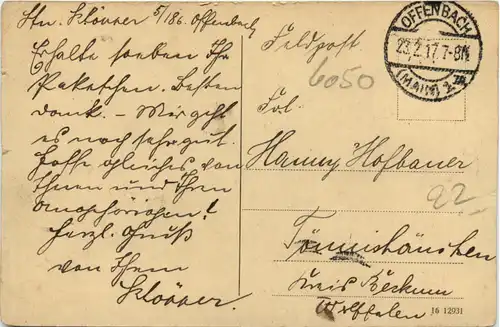 5/186. Offenbach
Erhalte soeben Ihr
Paketchen. Besten
Dank. – Mir geht
es noch sehr gut.
Hoffe gleiches von
Ihnen und Ihren
Angehörigen!
Herzl. Gruß
von Ihrem
Klövver.
OFFENBACH
23.2.17.7-8N.
(MAIN)
Feldpost.
6050
Frl.
Henny Hofbauer
92
Tönnishäuschen
Kreis Beckum
Westfalen
16 12931